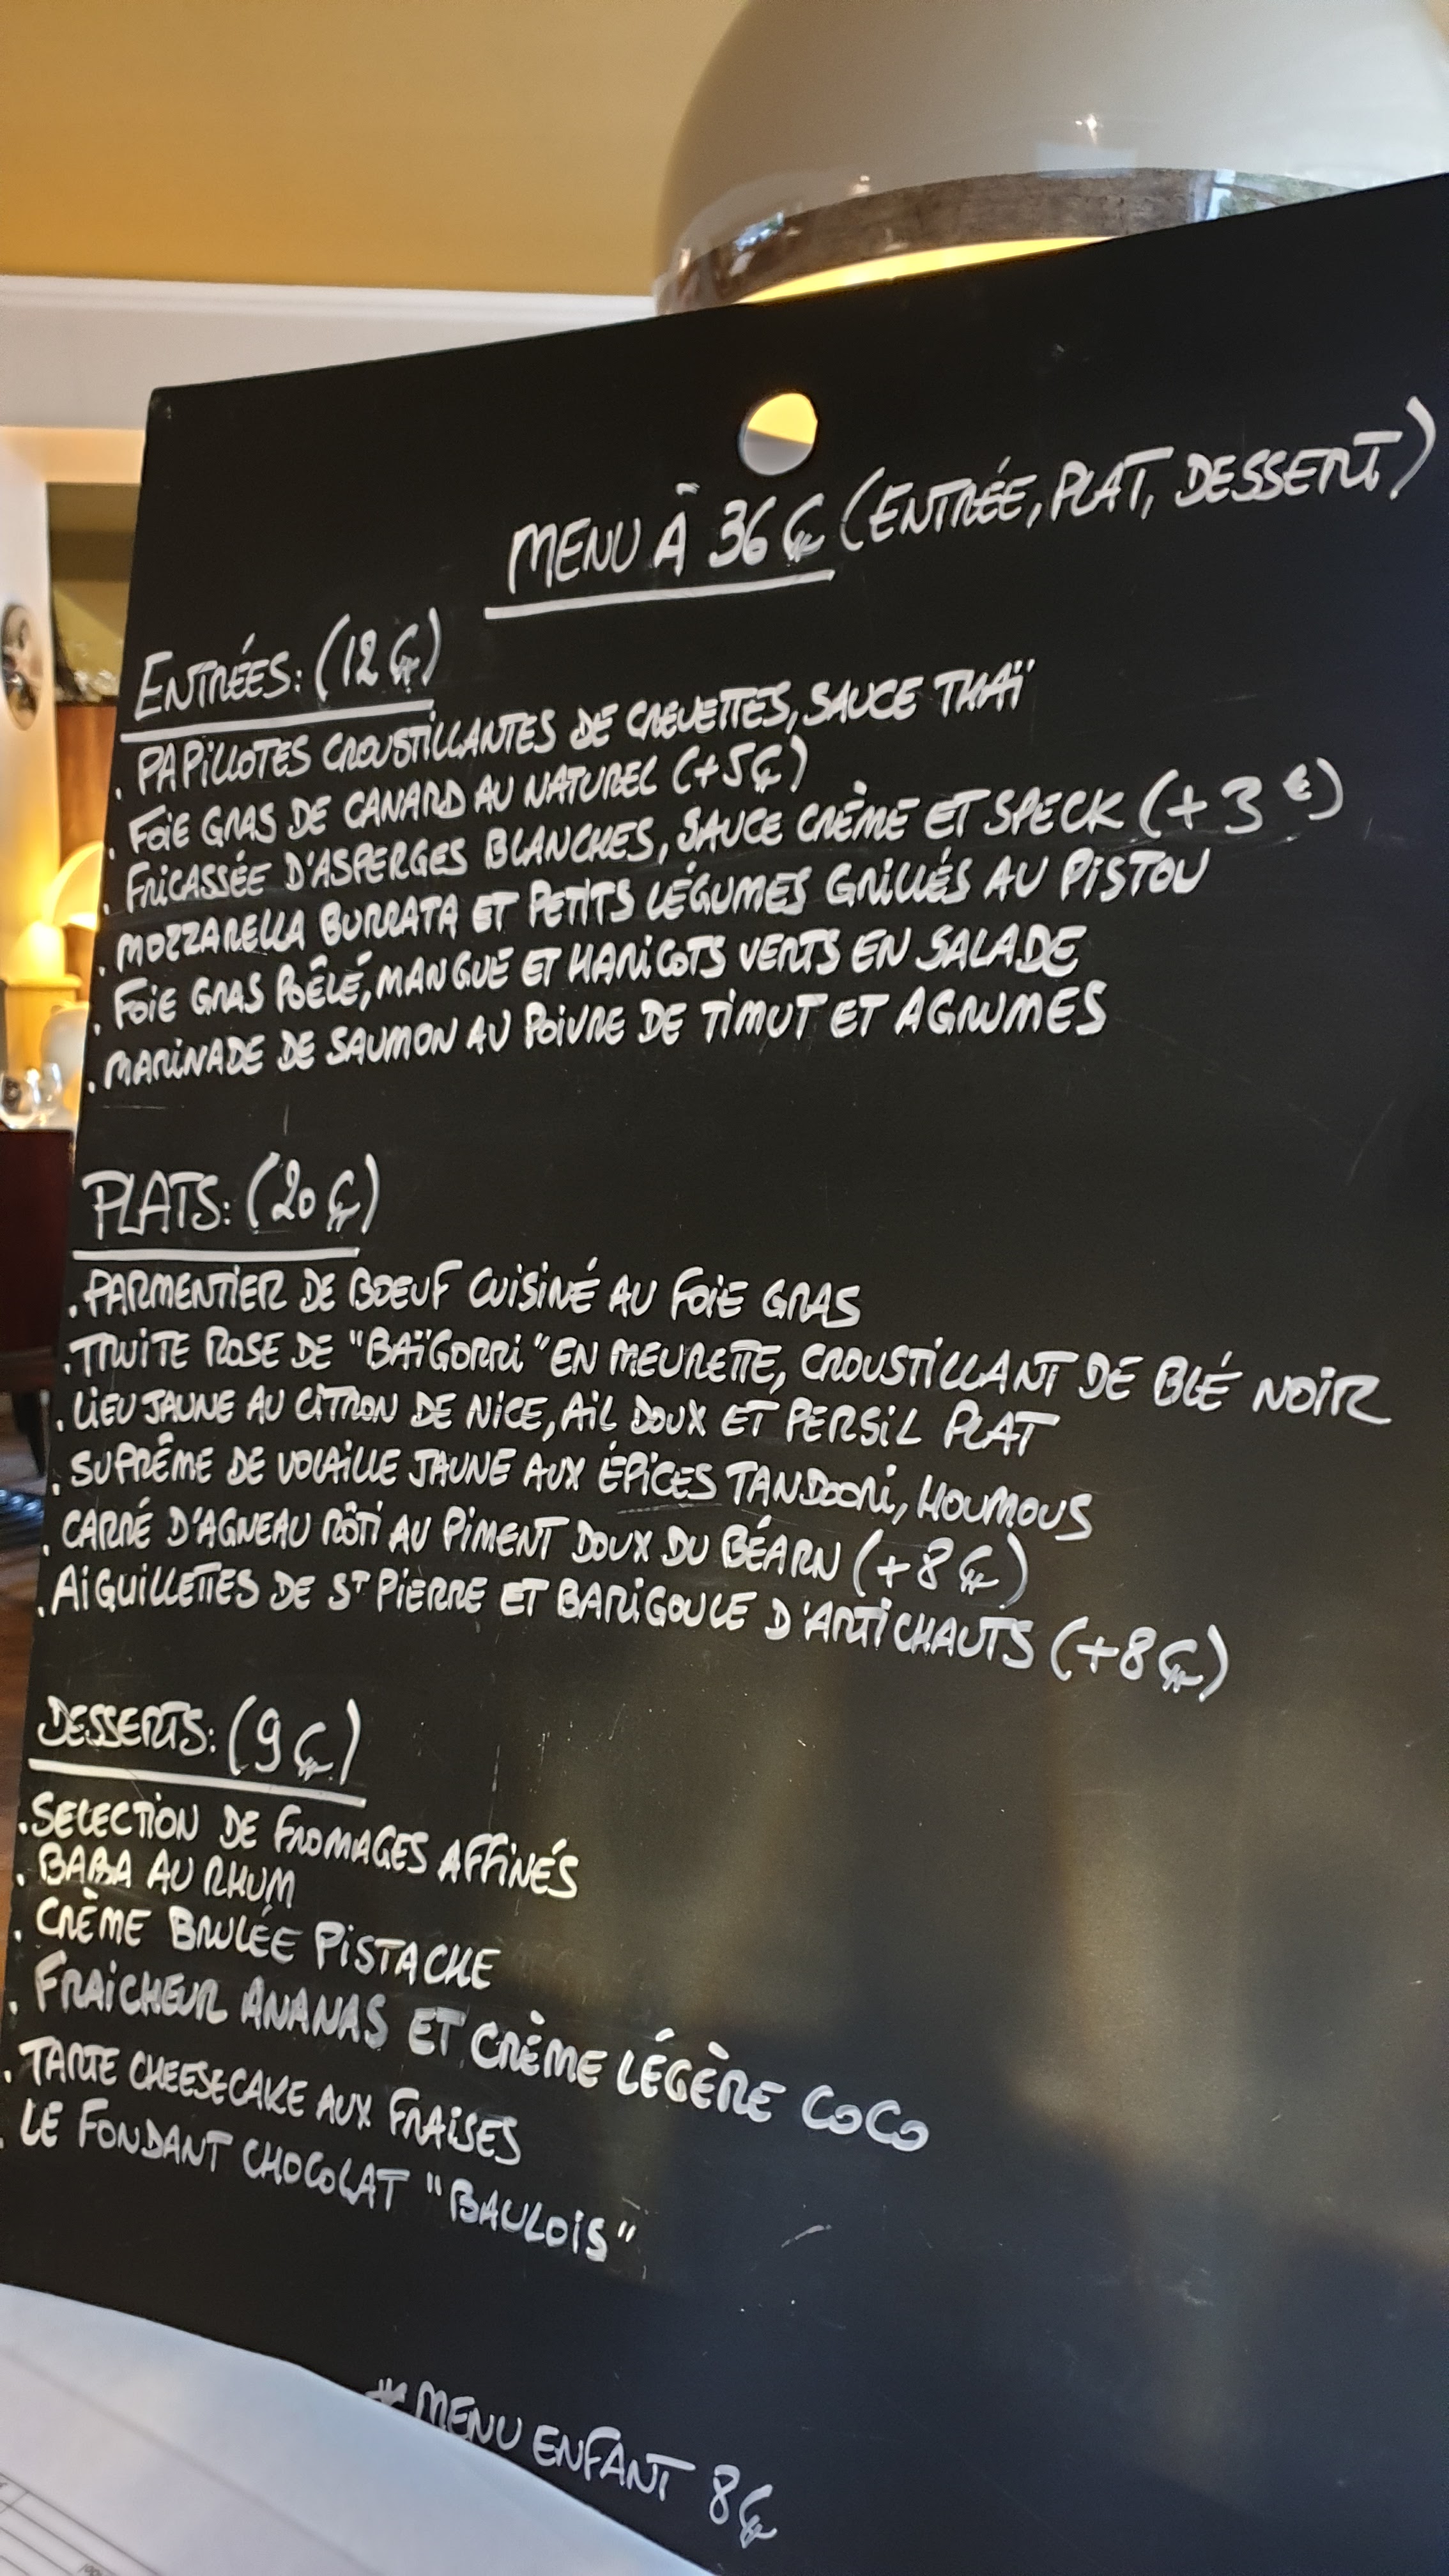 MENU À 36 € (ENTRÉE, PLAT, DESSERT)
ENTRÉES: (12 €)
. PAPILLOTES CROUSTILLANTES DE CREVETTES, SAUCE THAÏ
. FOIE GRAS DE CANARD AU NATUREL (+5€)
. FRICASSÉE D'ASPERGES BLANCHES, SAUCE CRÈME ET SPECK (+3 €)
. MOZZARELLA BURRATA ET PETITS LÉGUMES GRILLÉS AU PISTOU
. FOIE GRAS POÊLÉ, MANGUE ET HARICOTS VERTS EN SALADE
. MARINADE DE SAUMON AU POIVRE DE TIMUT ET AGRUMES
PLATS: (20 €)
. PARMENTIER DE BOEUF CUISINÉ AU FOIE GRAS
. TRUITE ROSE DE "BAÏGORRI" EN MEURETTE, CROUSTILLANT DE BLÉ NOIR
. LIEU JAUNE AU CITRON DE NICE, AIL DOUX ET PERSIL PLAT
. SUPRÊME DE VOLAILLE JAUNE AUX ÉPICES TANDOORI, HOUMOUS
. CARRÉ D'AGNEAU RÔTI AU PIMENT DOUX DU BÉARN (+8 €)
. AIGUILLETTES DE ST PIERRE ET BARIGOULE D'ARTICHAUTS (+8 €)
DESSERTS: (9 €)
. SELECTION DE FROMAGES AFFINÉS
. BABA AU RHUM
. CRÈME BRULÉE PISTACHE
. FRAICHEUR ANANAS ET CRÈME LÉGÈRE COCO
. TARTE CHEESECAKE AUX FRAISES
. LE FONDANT CHOCOLAT "BAULOIS"
* MENU ENFANT 8 €